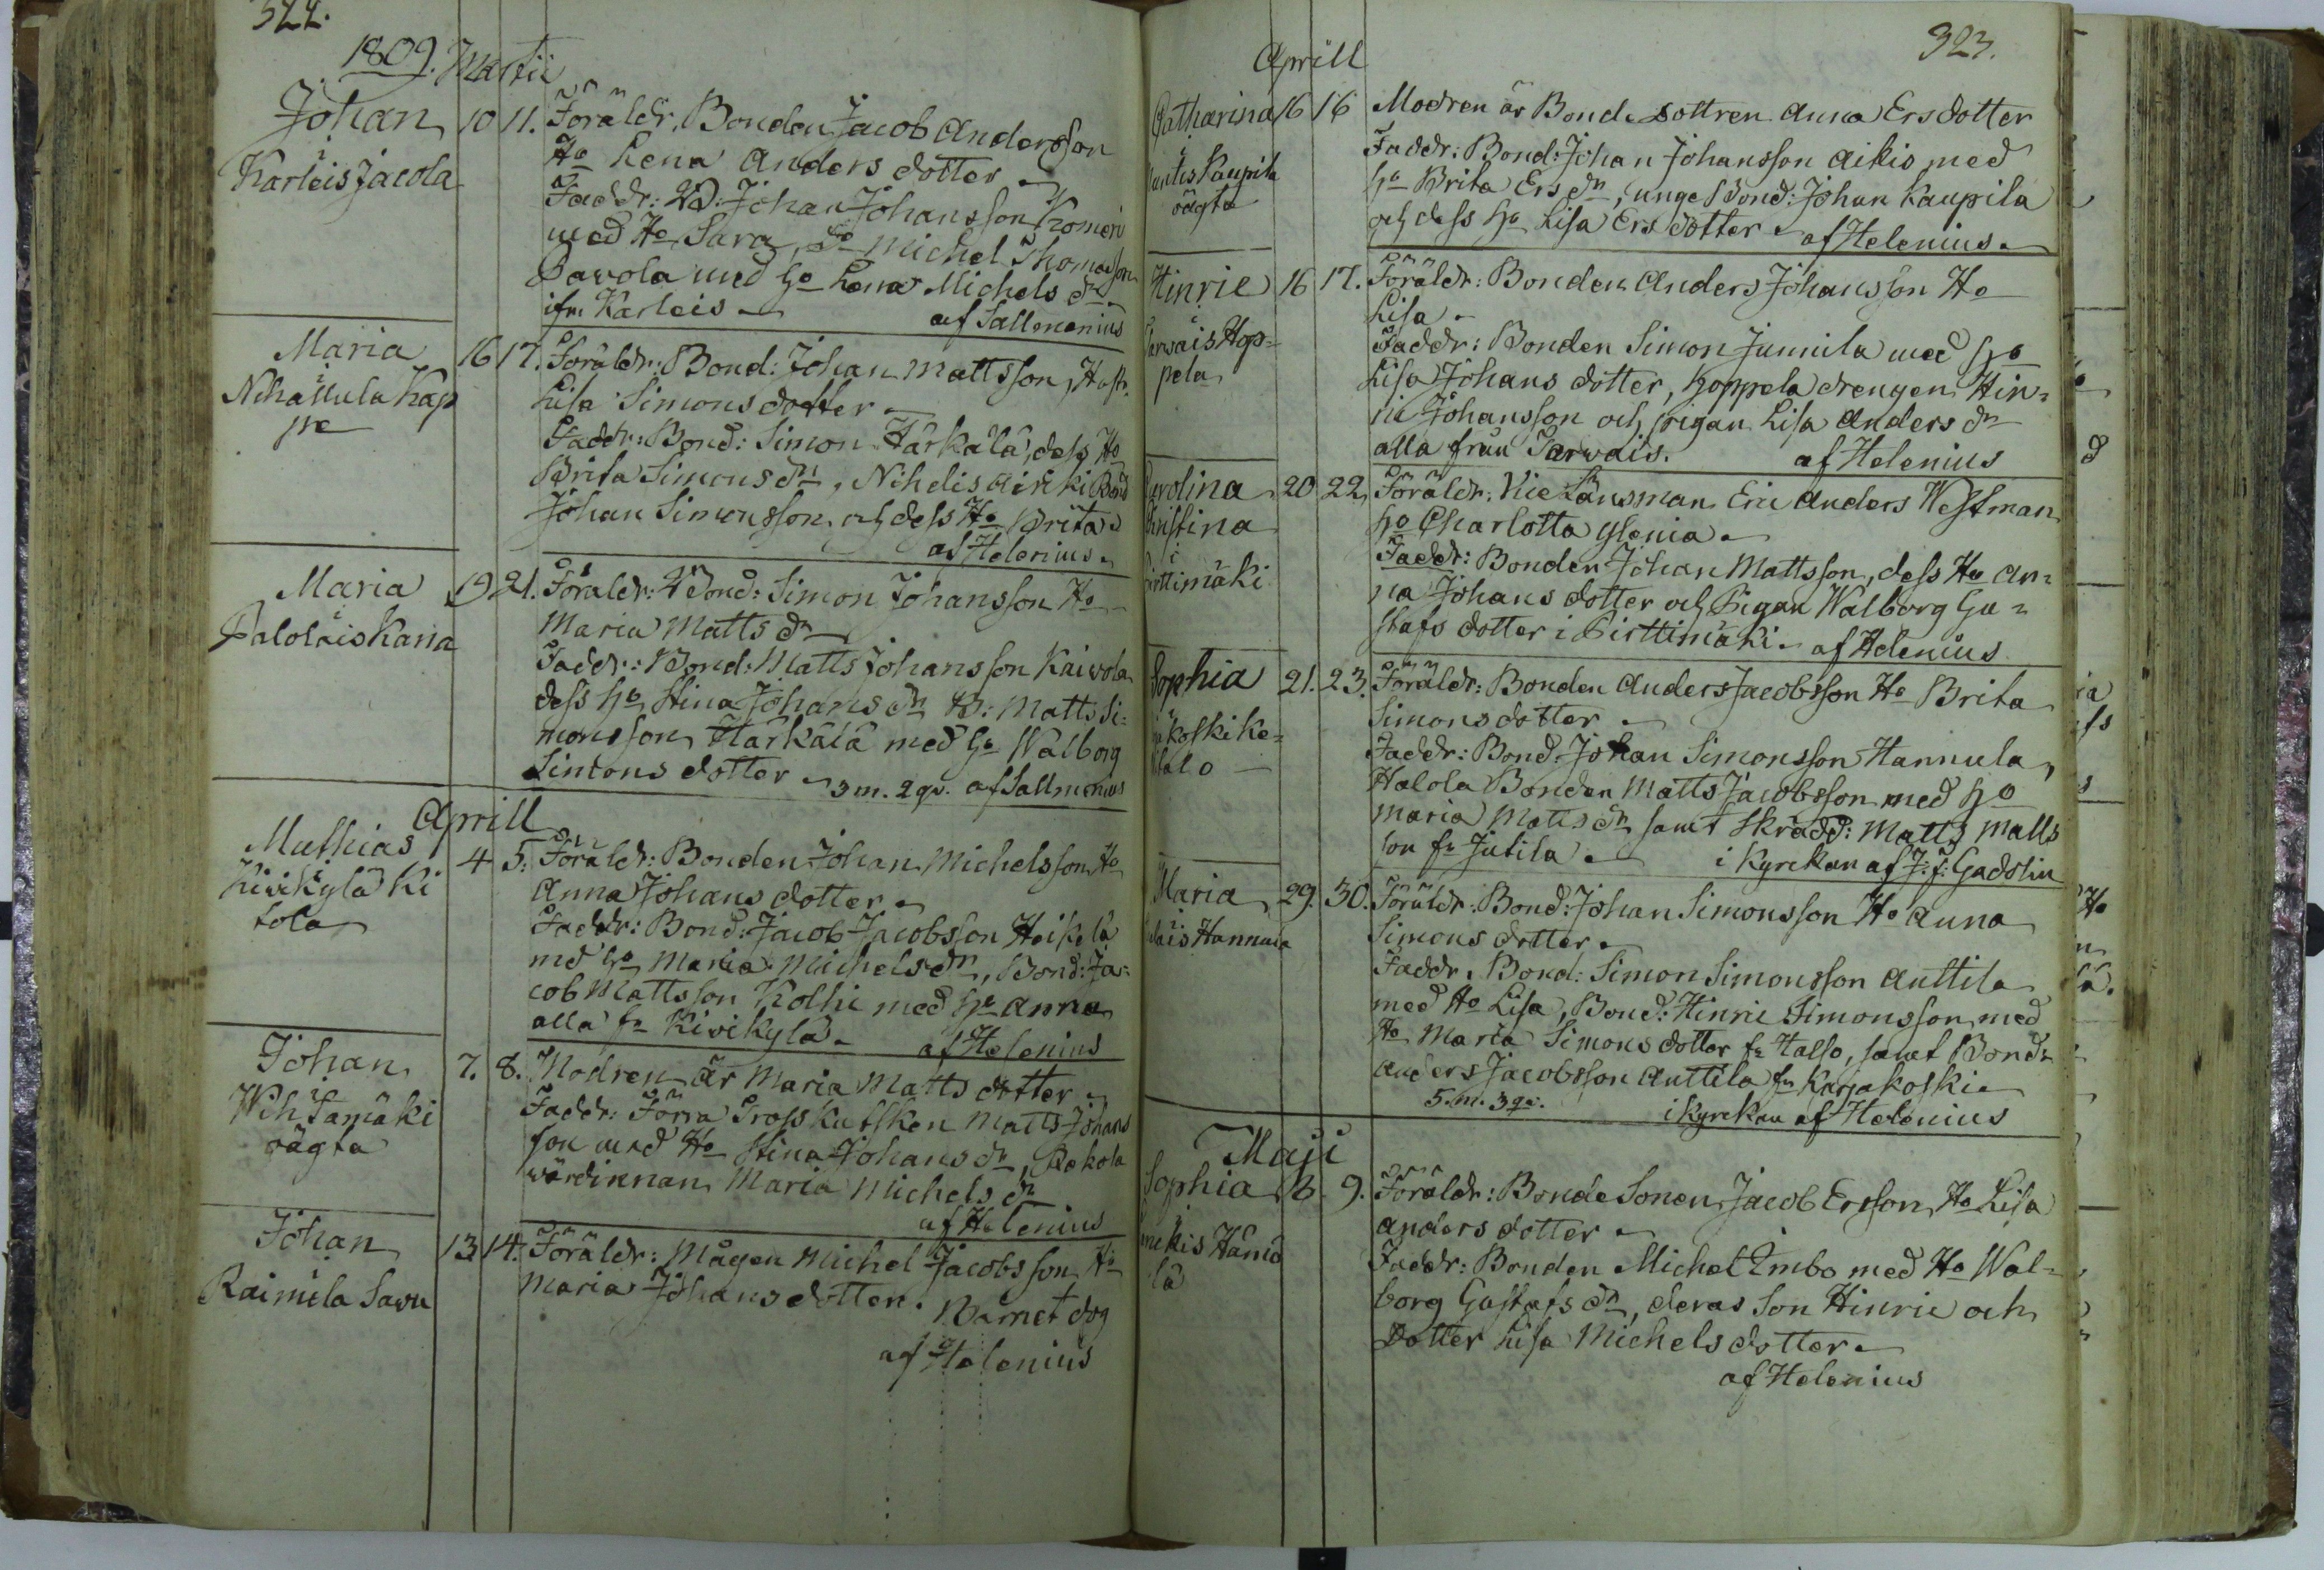 322.
1809. Martii
Johan 10 11. Föräldr. Bonden Jacob Andersson
i
Karleis Jacola
Ho Lena Andersdotter
Faddr: B: Johan Johansson Komeri
med Ho Sara, Bo Michel Thomasson
Pavola med Ho Lena Michels dr
ifr. Karleis af Sallmenius
Maria 16 17. Föräldr: Bond: Johan Mattsson, Hust.
i
Nihattula Kap
pe
Lisa Simonsdotter
Faddr: Bond: Simon Härkälä, dess Ho
Brita Simons dr, Nihelis Airiki Bond
Johan Simonsson och dess Ho Brita
af Helenius
Maria 19 21. Föräldr: Bond: Simon Johansson Ho
i
Palolais Karia
Maria Matts dr
Faddr: Bond: Matts Johansson Kaivola
dess Ho Stina Johans dr B: Matts Si=
monsson Härkälä med Ho Walborg
Simonsdotter 3 m. 2 qv. af Sallmenius
Aprill
Mathias 4 5. Föräldr: Bonden Johan Michelsson Ho
i
Kivikylä Ki
tola
Anna Johansdotter
Faddr: Bond: Jacob Jacobsson Heikelä
md Ho Maria Michels dr, Bond: Ja=
cob Mattsson Kolhi med Ho Anna
alla fr Kivikylä. af Helenius
Johan 7. 8. Modren är Maria Mattsdotter
i
Wihtamäki
oägta
Faddr: Förra Trosskutsken Matts Johans
son med Ho Stina Johans dr, Kokola
wärdinnan Maria Michels dr
af Helenius
Johan 13 14. Föräldr: Mågen Michel Jacobsson Ho
i
Raimela Savu
Maria Johansdotter. Barnet dog
af Helenius
323.
Aprill
Catharina 16 16 Modren är Bondedottren Anna Ersdotter
Kaupila
oägta
Faddr: Bond: Johan Johansson Aikio med
Ho Brita Ers dr, unge Bond: Johan Kaupila
och dess Ho Lisa Ersdotter af Helenius
Hinric 16 17. Föräldr: Bonden Anders Johansson Ho
i
Hop=
pela
Lisa
Faddr: Bonden Simon Junnila med Ho
Lisa Johansdotter, Hoppela drengen Hin=
ric Johansson och pigan Lisa Anders dr
alla från Tarwais. af Helenius
Carolina 20 22 Föräldr: Vice Länsman Eric Anders Westman
Christina
i
Pirttimäki
Ho Charlotta Glenia
Faddr: Bonden Johan Mattsson, dess Ho An=
na Johansdotter och Pigan Walborg Gu=
stafsdotter i Pirttimäki af Helenius
Sophia 21. 23. Föräldr: Bonden Anders Jacobsson Ho Brita
koski Ke=
talo
Simonsdotter
Faddr: Bond: Johan Simonsson Hannula,
Halola Bonden Matts Jacobsson med Ho
Maria Matts dr samt Skrädd: Matts Matts
son fr Jutila i Kyrckan af J: f: Gadolin
Maria 29. 30. Föräldr: Bond: Johan Simonsson Ho Anna
Hannula
Simonsdotter
Faddr. Bond: Simon Simonsson Anttila
med Ho Lisa, Bond: Hinric Simonsson med
Ho Maria Simonsdotter fr Hallo, samt Bond=
Anders Jacobsson Anttila fr Karjakoski
5. m. 3 qv. i Kyrckan af Helenius
Maji
Sophia 8 9. Föräldr: Bonde Sonen Jacob Ersson Ho Lisa
Andersdotter
Faddr: Bonden Michel Embo med Ho Wal=
borg Gustafs dr, deras Son Hinric och
Dotter Lisa Michelsdotter
af Helenius